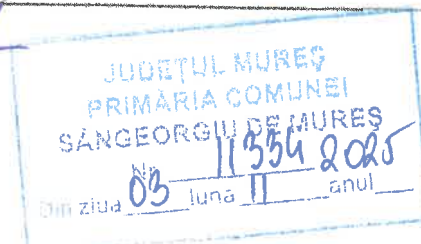 JUDEȚUL MUREȘ
PRIMĂRIA COMUNEI
SÂNGEORGIU DE MUREȘ
Nr. 11334 2025
Din ziua 03 luna 11 anul